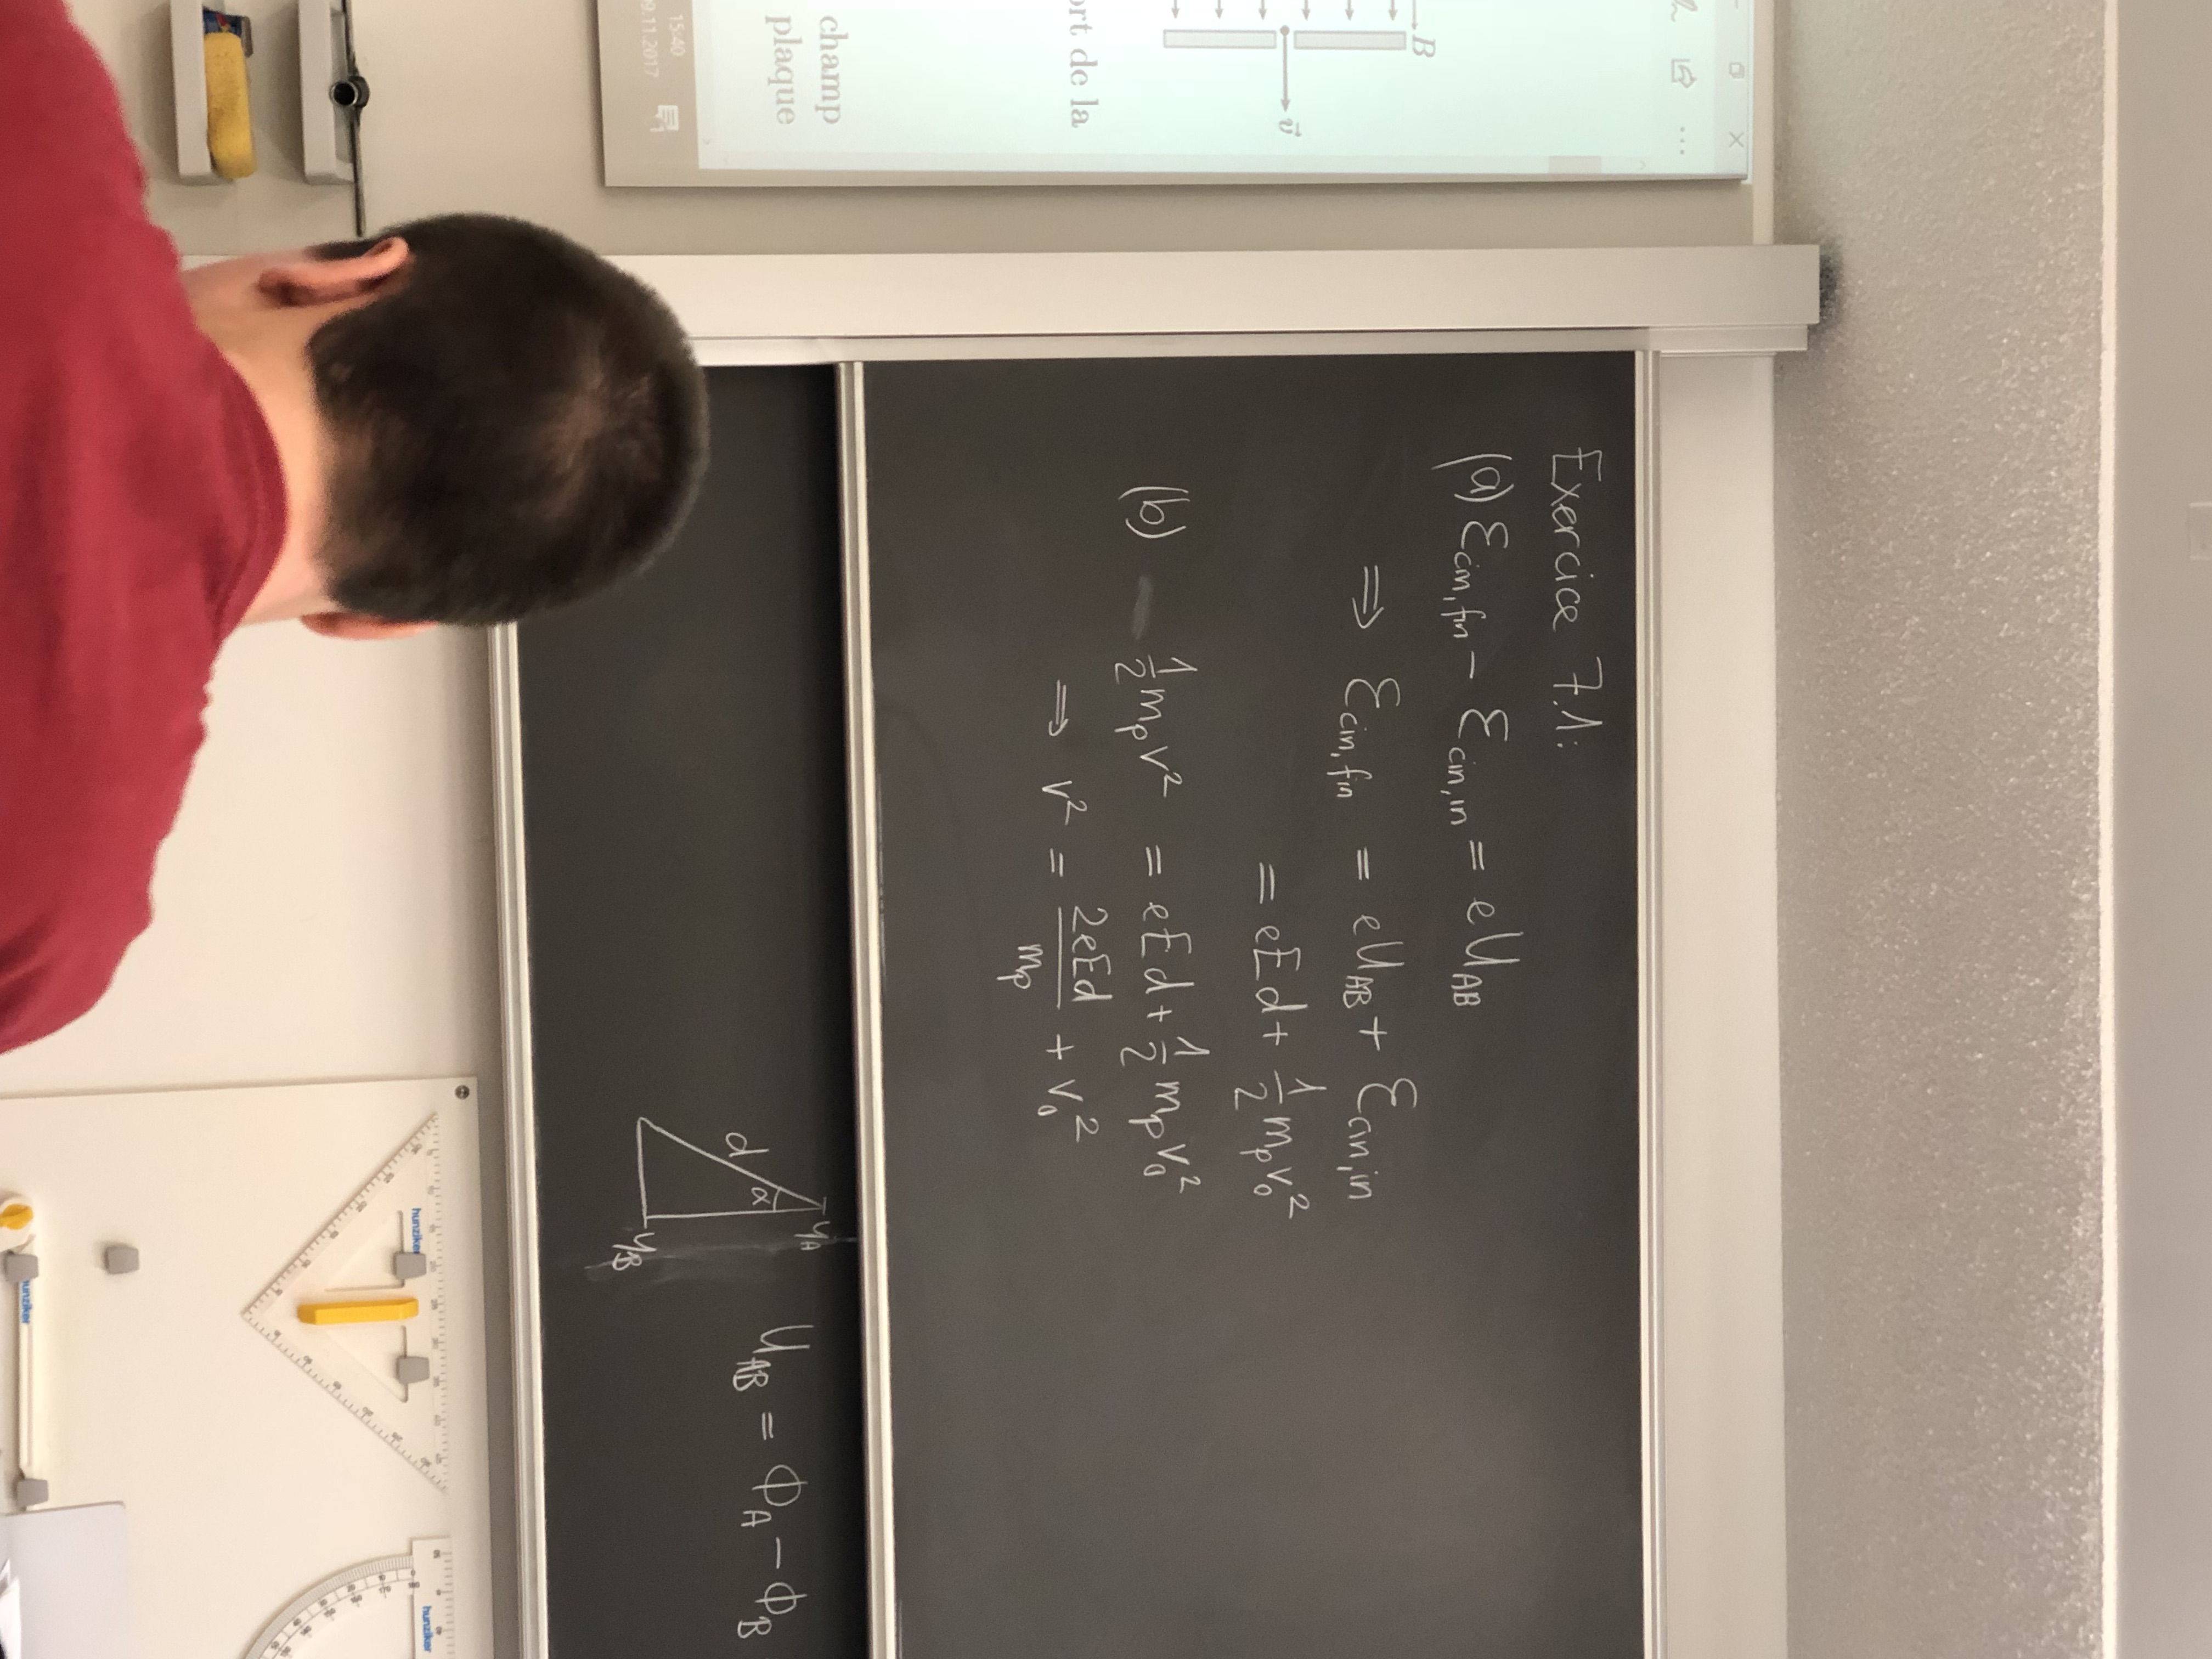 B
v⃗
ort de la
champ
plaque
15:40
09.11.2017
Exercice 7.1:
(a) Ɛcin,fin − Ɛcin,in = eU_AB
⇒ Ɛcin,fin = eU_AB + Ɛcin,in
= eEd + 1/2 m_p v_0²
(b) 1/2 m_p v² = eEd + 1/2 m_p v_0²
⇒ v² = 2eEd/m_p + v_0²
d α y_A
y_B
U_AB = Φ_A − Φ_B
hunziker
hunziker
hunziker